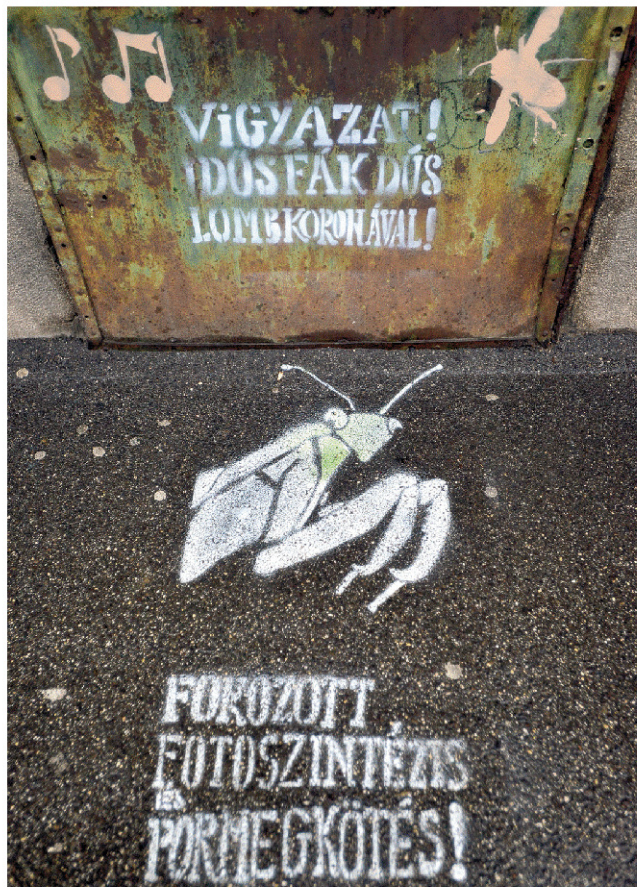 ViGYÁZAT!
IDŐS FÁK DÚS
LOMBKORONÁVAL!
FOKOZOTT
FOTOSZINTÉZIS
ÉS
PORMEGKÖTÉS!